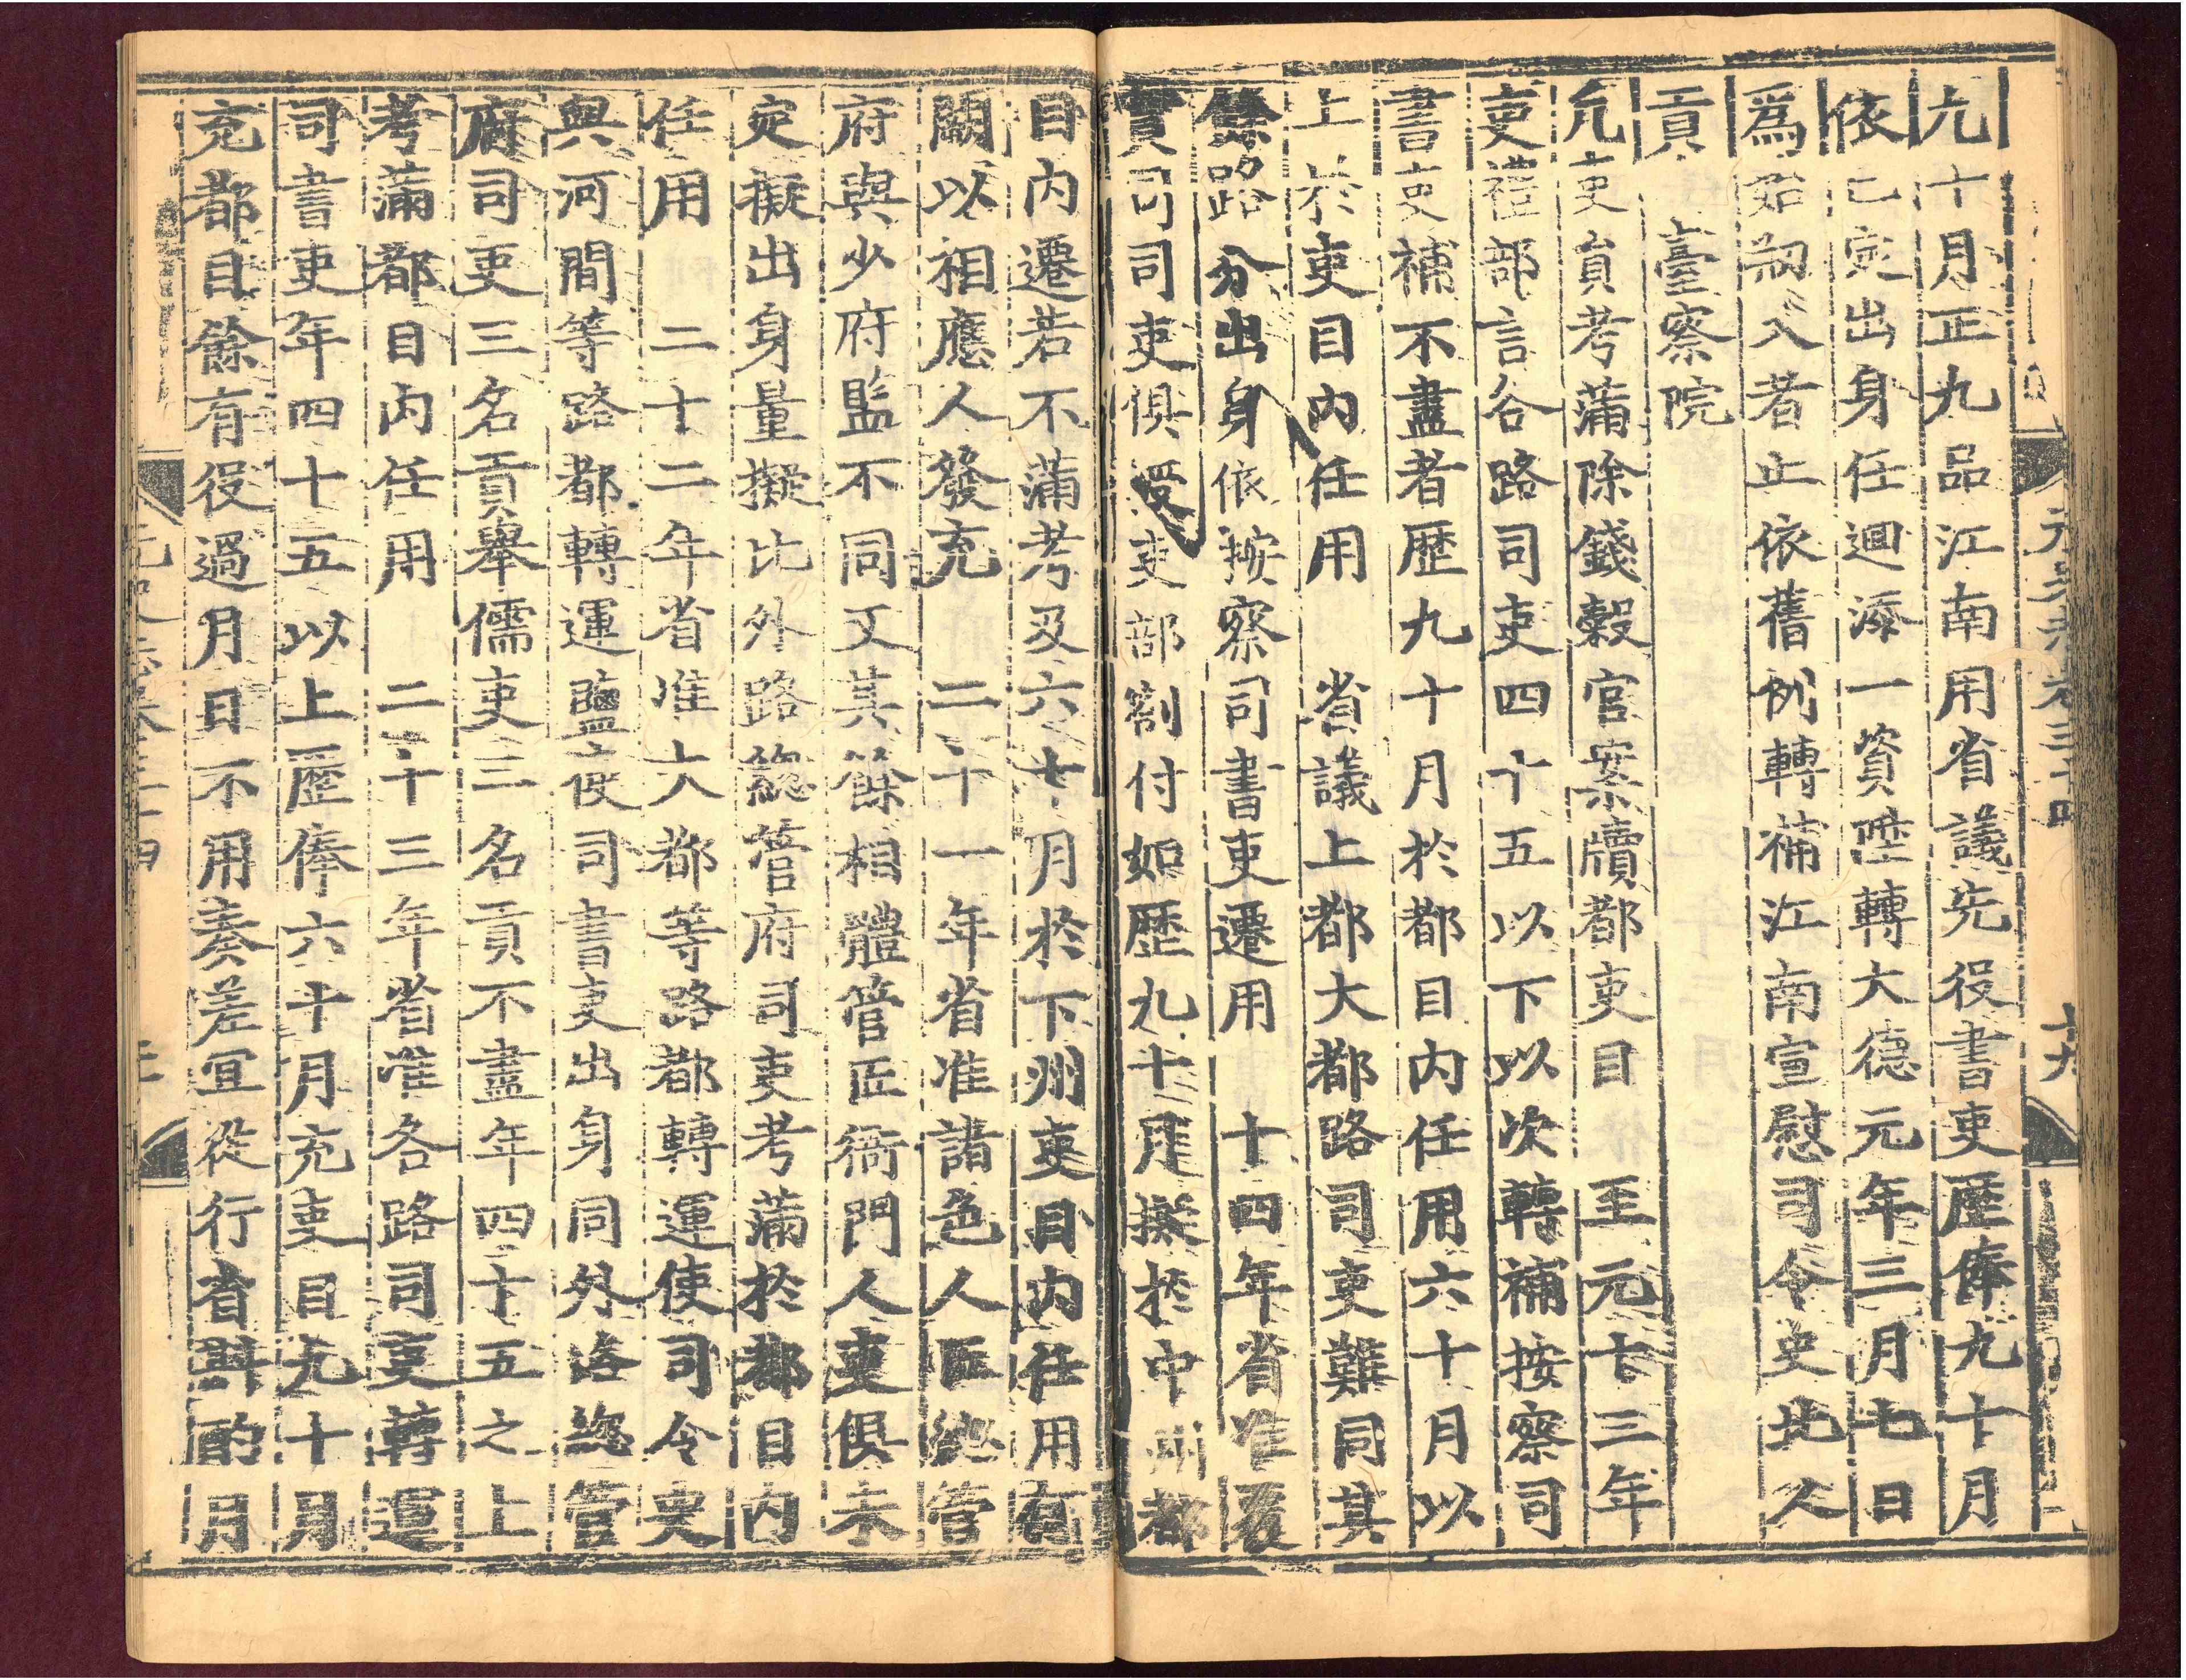 九十月正九品江南用省議先役書吏歴俸九十月
依已定出身任迴添一資陞轉大德元年三月七日
爲始刱入者止依舊例轉補江南宣慰司令史北人
貢臺察院
九吏員考滿除錢穀官案牘都吏目 至元十三年
吏禮部言各路司吏四十五以下以次轉補按察司
書吏補不盡者歴九十月於都目内任用六十月以
上於吏目内任用 省議上都大都路司吏難同其
餘路分出身依按察司書吏遷用 十四年省准覆
實司司吏俱受吏部劄付如歴九十月擬於中州都
目内遷若不滿考及六十月於下州吏目内任用有
闕以相應人發充 二十一年省准諸色人匠總管
府與少府監不同又其餘相體管匠衙門人吏俱未
定擬出身量擬比外路總管府司吏考滿於都目内
任用 二十二年省准大都等路都轉運使司令史
與河間等路都轉運鹽使司書吏出身同外路總管
府司吏三名貢舉儒吏三名貢不盡年四十五之上
考滿都目内任用 二十三年省准各路司吏轉運
司書吏年四十五以上歴俸六十月充吏目九十月
充都目餘有役過月日不用奏差宜從行省斟酌月
元史志卷三十四
十九